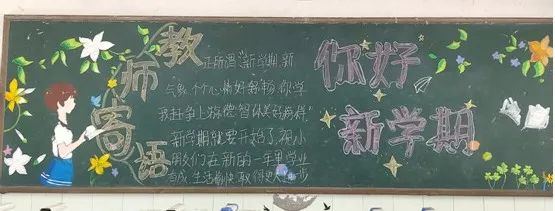 教师寄语
正所谓"新学期,新
气象,个个心情好舒畅,你学
我赶争上游,德智体美好榜样"
新学期就要开始了,祝小
朋友们在新的一年里学业
有成,生活愉快,取得更大进步
你好
新学期